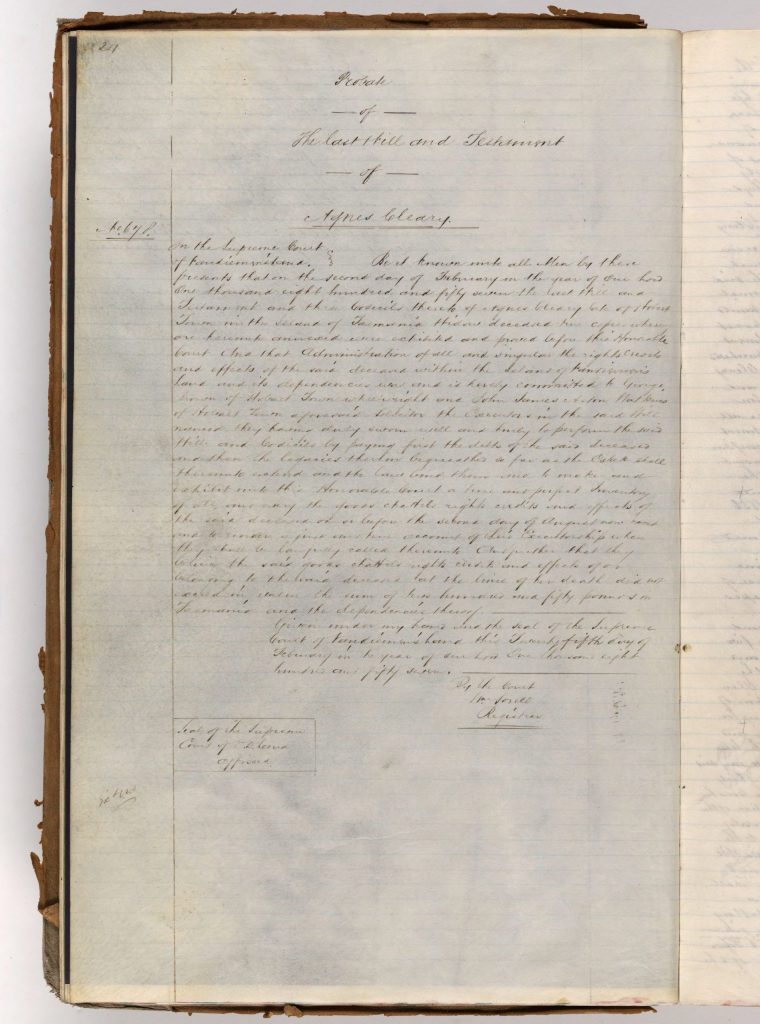 Probate
— of —
The last Will and Testament
— of —
Agnes Cleary.
In the Supreme Court
of Vandiemensland. } Be it known unto all Men by these
presents that on the second day of February in the year of our Lord
One thousand eight hundred and fifty seven the last Will and
Testament and three Codicils thereto of Agnes Cleary late of Hobart
Town in the Island of Tasmania Widow deceased true copies where
are hereunto annexed were exhibited and proved before this Honorable
Court And that Administration of all and singular the rights Credits
and effects of the said deceased within the Island of Vandiemens
land and its dependencies was and is hereby committed to George
of Hobart Town wheelwright and John James Watkins
of Hobart Town aforesaid Solicitor the Executors in the said Will
named they having duly sworn well and truly to perform the said
Will and Codicils by paying first the debts of the said deceased
and then the legacies therein bequeathed so far as the Estate shall
thereunto extend and the law bind them and to make and
exhibit unto this Honorable Court a true and perfect Inventory
of all and sing the goods chattels rights credits and effects of
the said deceased on or before the second day of August now next
and to render a just and true account of their Executorship when
they shall be lawfully called thereunto And further that they
believe the said goods chattels rights credits and effects of or
belonging to the said deceased at the time of her death did not
exceed in value the sum of hundred and fifty pounds in
Tasmania and the dependencies thereof.
Given under my hand and the seal of the Supreme
Court of Vandiemensland this Twenty fifth day of
February in the year of our Lord One thousand eight
hundred and fifty seven.
By the Court
Wm Sorell
Registrar
Seal of the Supreme
Court of V. D. Land
affixed